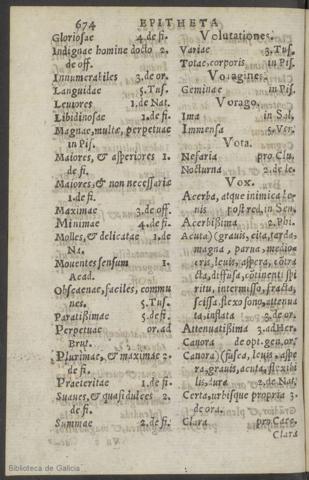 674 EPITHETA
Gloriosae 4. de fi.
Indignae homine docto 2.
de off.
Innumerabiles 3. de or.
Languidae 5. Tus.
Leuiores 1. de Nat.
Libidinosae 1. de fi.
Magnae, multae, perpetuae
in Pis.
Maiores, & asperiores 1.
de fi.
Maiores, & non necessariae
1. de fi.
Maximae 3. de off.
Minimae 4. de fi.
Molles, & delicatae 1. de
Na.
Mouentes sensum 1.
Acad.
Obscaenae, faciles, commu
nes. 5. Tus.
Paratissimae 5. de fi.
Perpetuae or. ad
Brut.
Plurimae, & maximae 2.
de fi.
Praeteritae 1. de fi.
Suaues, & quasi dulces 2.
de fi.
Summae 2. de fi.
Volutationes.
Variae 3. Tus.
Totae, corporis in Pis.
Voragines.
Geminae in Pis.
Vorago.
Ima in Sal.
Immensa 5. Ver.
Vota.
Nefaria pro Clu.
Nocturna 2. de le.
Vox.
Acerba, atque inimica le-
nis post red. in Sen.
Acerbissima 2. Phi.
Acuta) grauis, cita, tarda,
magna, parua, medio-
cris, leuis, aspera, cõtra
cta, diffusa, cõtinenti spi
ritu, intermisso, fracta,
scissa. flexo sono, attenua
ta, inflata 3. de or.
Attenuatissima 3. ad Her.
Canora de opt. gen. or.
Canora) (fusca, leuis, aspe
ra, grauis, acuta, flexibi
lis, dura 2. de Nat.
Certa, urbisque propria 3.
de ora.
Clara pro Caec.
Clara
Biblioteca de Galicia